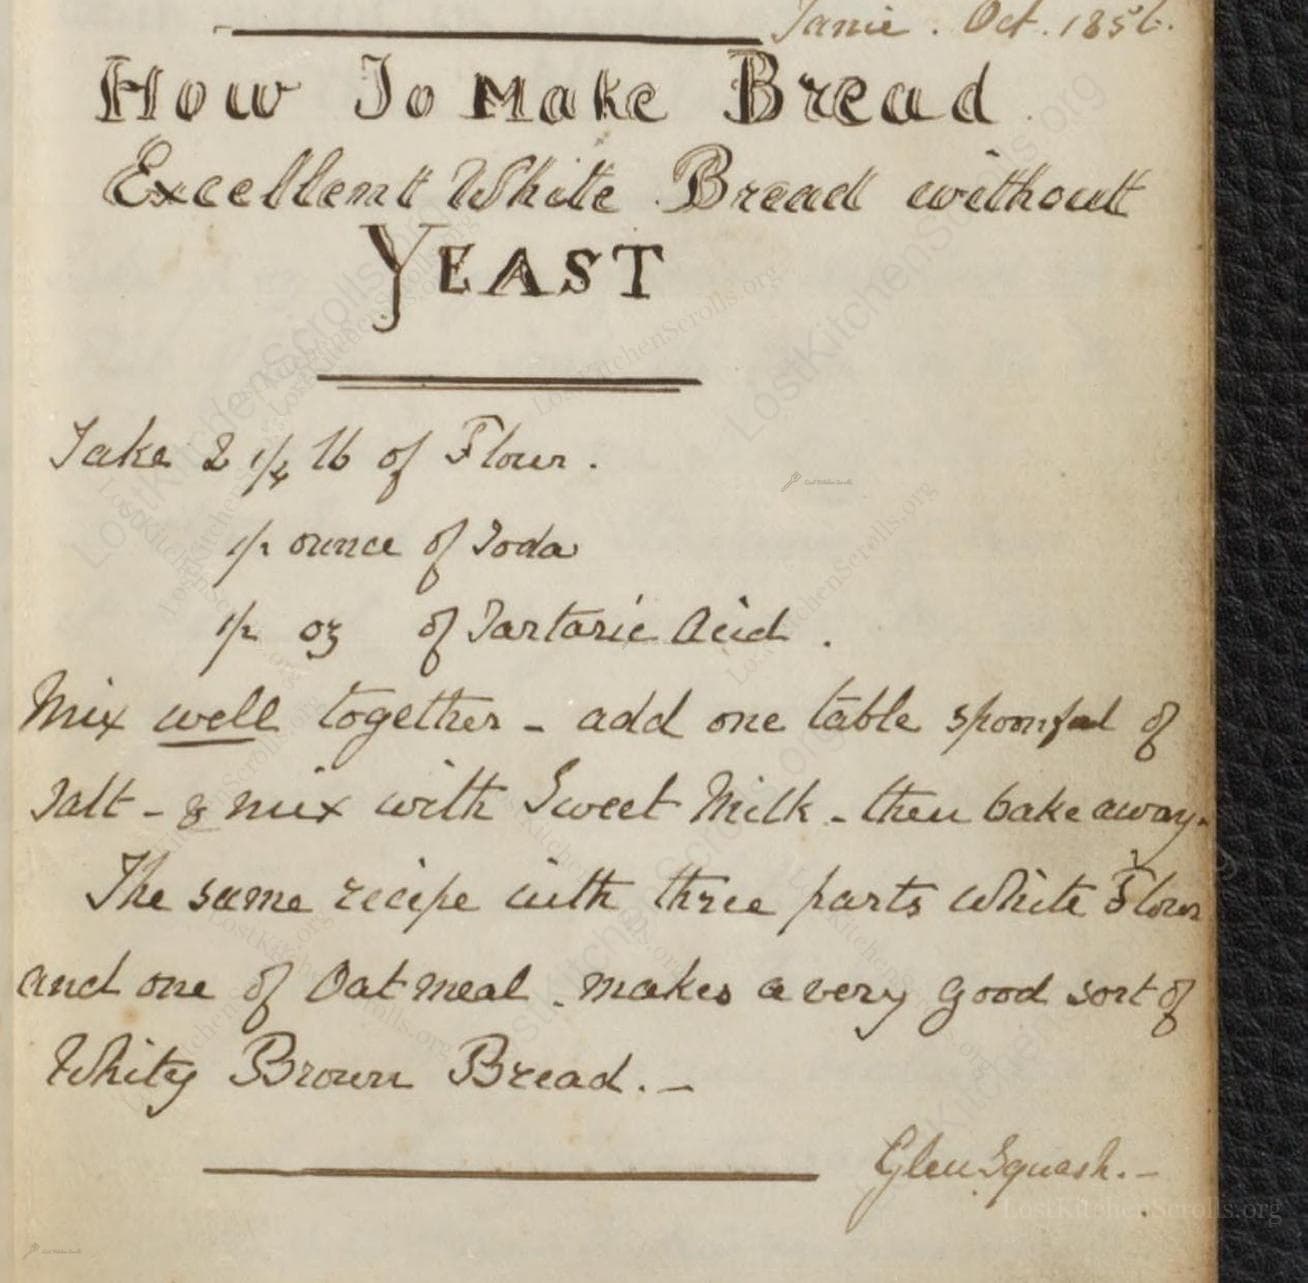 Janie. Oct. 1856.
How To Make Bread
Excellent White Bread without
YEAST
Take 2 1/4 lb of Flour.
1/2 ounce of Soda
1/2 oz of Tartaric Acid.
Mix well together - add one table spoonful of
Salt - & mix with Sweet Milk - then bake away.
The same recipe with three parts White Flour
and one of Oatmeal. makes a very good sort of
Whity Brown Bread. -
Glen Squash. -
LostKitchenScrolls.org